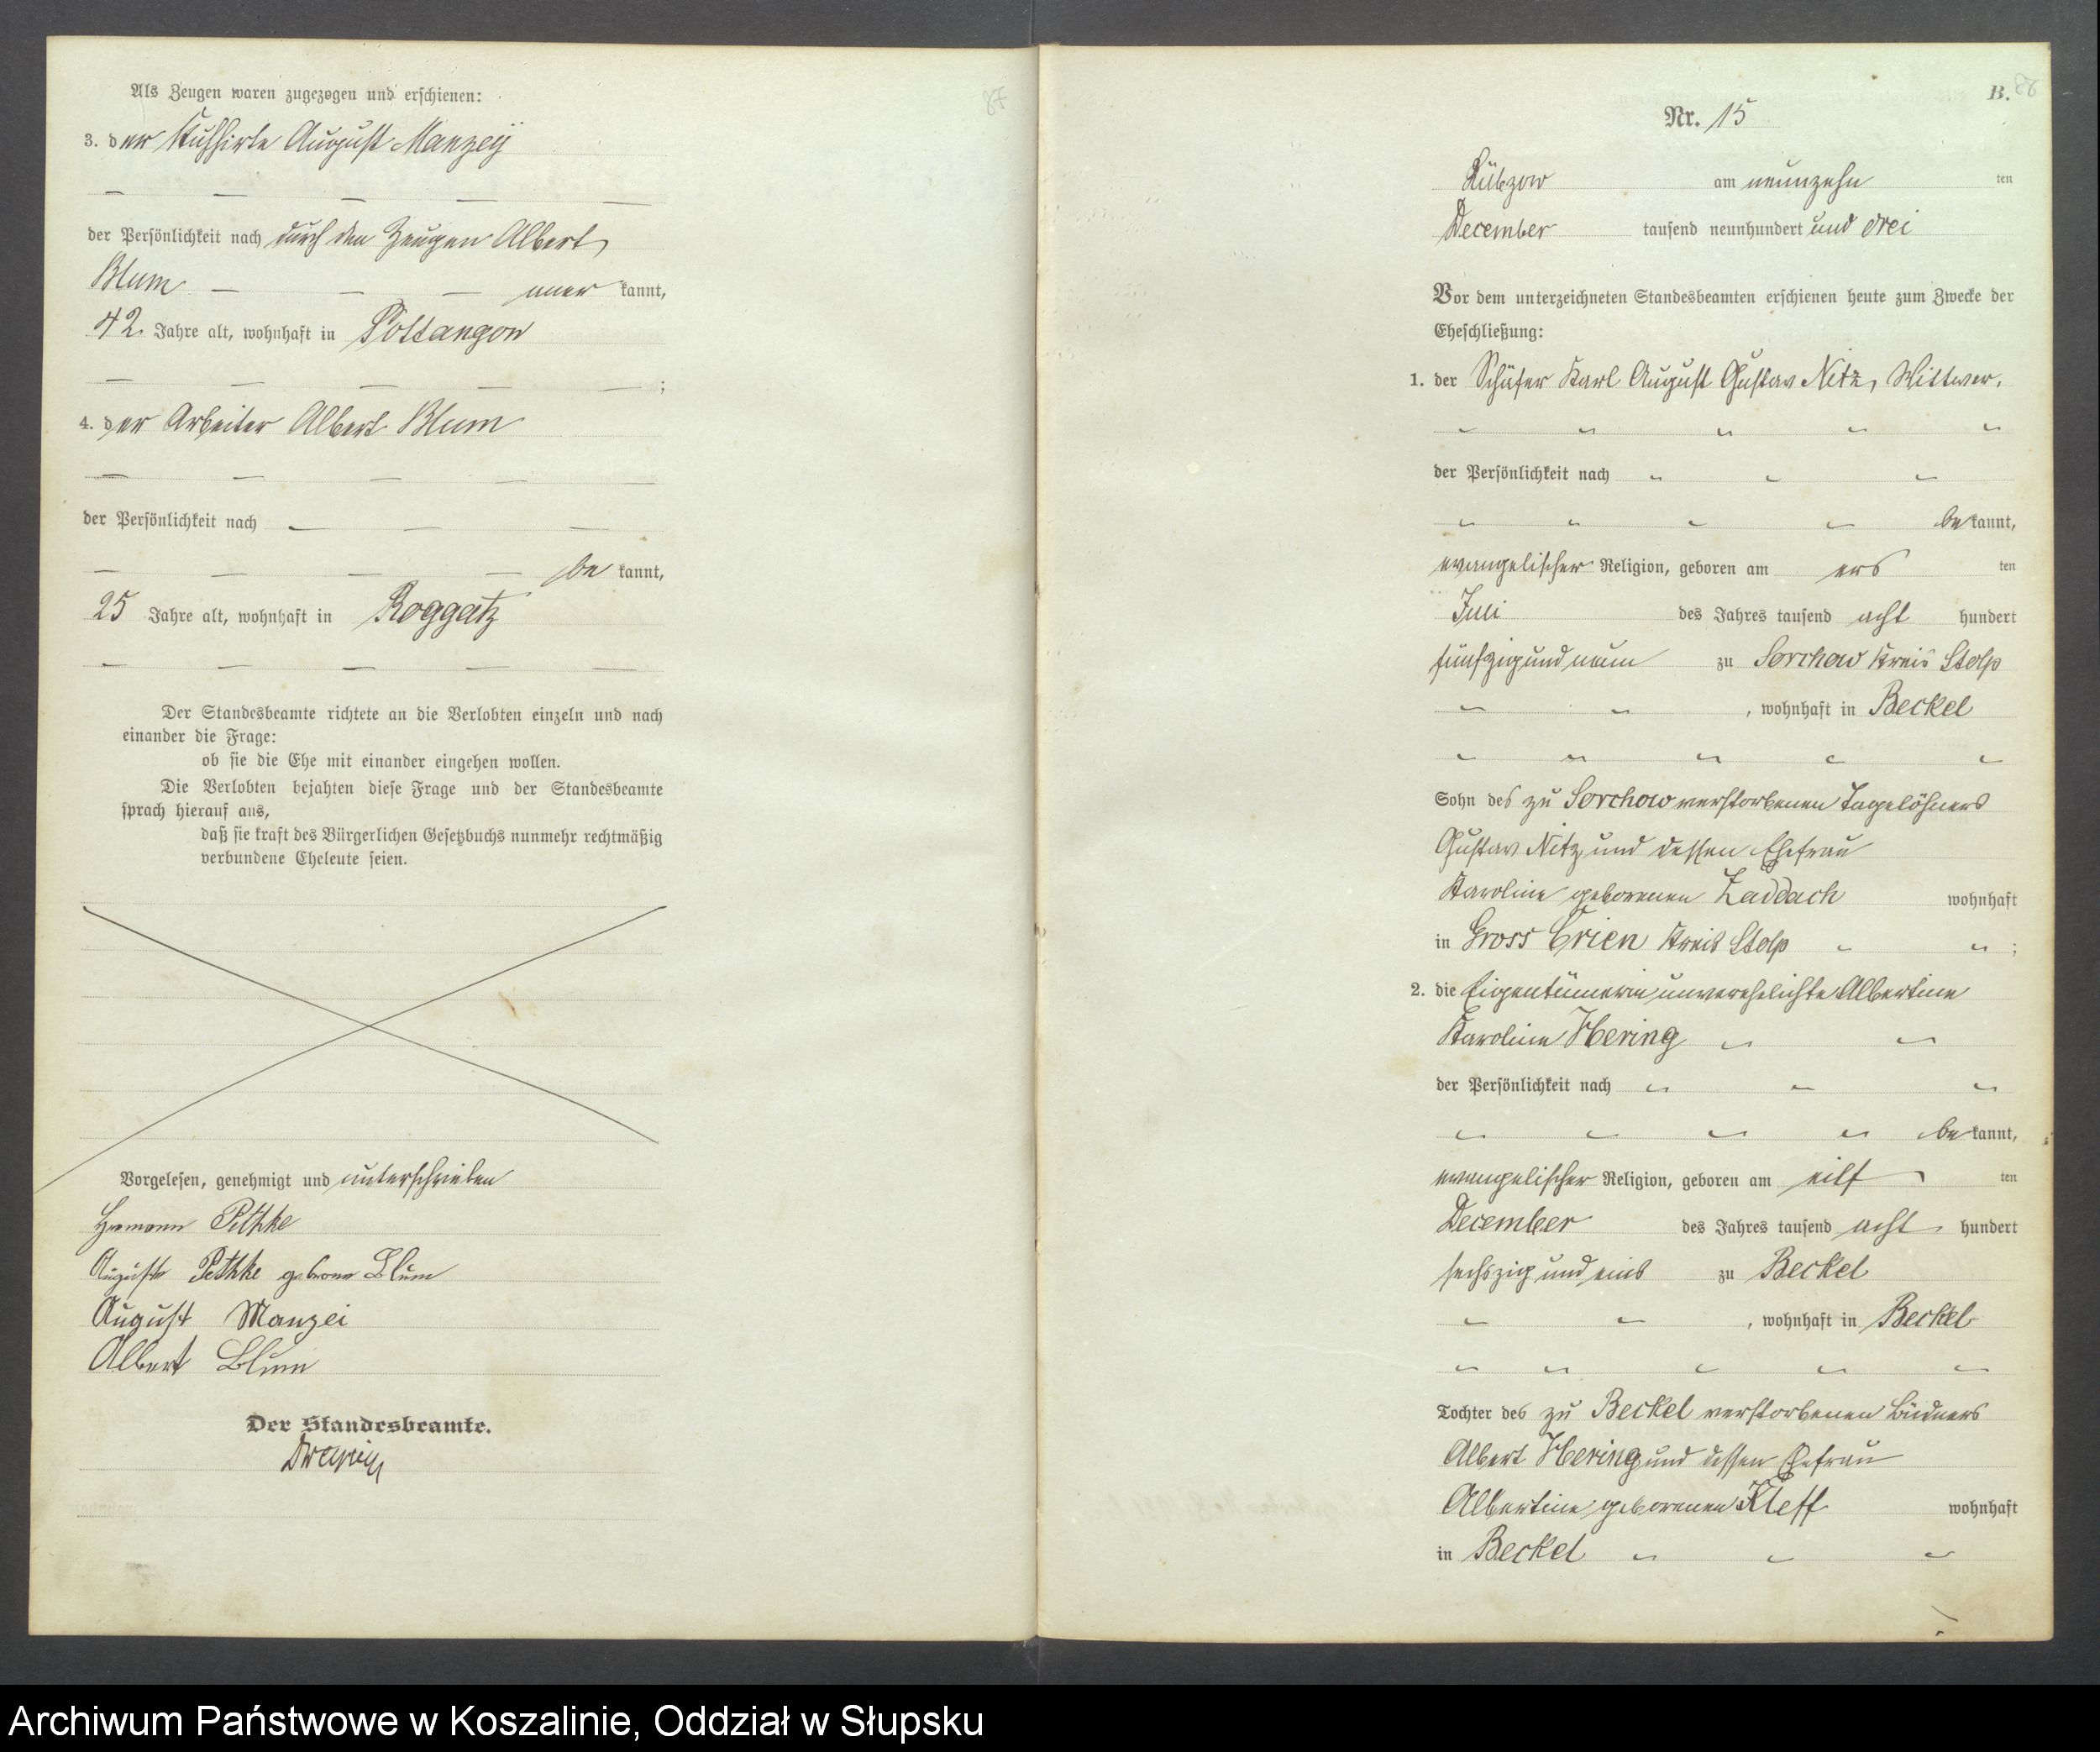 Als Zeugen waren zugezogen und erschienen:
3. der Kuhhirte August Manzeÿ
der Persönlichkeit nach durch den Zeugen Albert
Blum — — — aner kannt,
42 Jahre alt, wohnhaft in Pottangow
— — — — — ;
4. der Arbeiter Albert Blum
— — — — —
der Persönlichkeit nach — — —
— — — — be kannt,
25 Jahre alt, wohnhaft in Roggatz
— — — — —
Der Standesbeamte richtete an die Verlobten einzeln und nach
einander die Frage:
ob sie die Ehe mit einander eingehen wollen.
Die Verlobten bejahten diese Frage und der Standesbeamte
sprach hierauf aus,
daß sie kraft des Bürgerlichen Gesetzbuchs nunmehr rechtmäßig
verbundene Eheleute seien.
Vorgelesen, genehmigt und unterschrieben
Hermann Pethke
Auguste Pethke geborene Blum
August Manzei
Albert Blum
Der Standesbeamte.
87
B. 88
Nr. 15
Lübzow am neunzehn ten
December tausend neunhundert und drei
Vor dem unterzeichneten Standesbeamten erschienen heute zum Zwecke der
Eheschließung:
1. der Schäfer Karl August Gustav Nitz, Wittwer,
der Persönlichkeit nach
be kannt,
evangelischer Religion, geboren am ers ten
Juli des Jahres tausend acht hundert
fünfzig und neun zu Sorchow Kreis Stolp
, wohnhaft in Beckel
Sohn des zu Sorchow verstorbenen Tagelöhners
Gustav Nitz und dessen Ehefrau
Karoline geborenen Zaddach wohnhaft
in Gross Crien Kreis Stolp ;
2. die Eigentümerin, unverehelichte Albertine
Karoline Hering
der Persönlichkeit nach
be kannt,
evangelischer Religion, geboren am eilf ten
December des Jahres tausend acht hundert
sechszig und eins zu Beckel
, wohnhaft in Beckel
Tochter des zu Beckel verstorbenen Büdners
Albert Hering und dessen Ehefrau
Albertine geborenen Kleff wohnhaft
in Beckel
Archiwum Państwowe w Koszalinie, Oddział w Słupsku